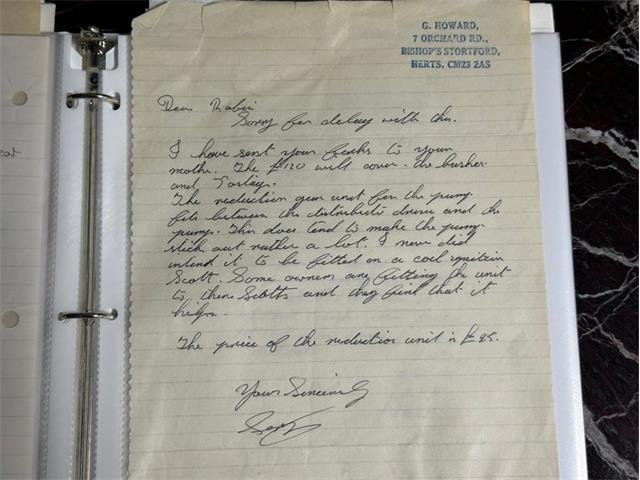 G. HOWARD,
7 ORCHARD RD.,
BISHOP'S STORTFORD,
HERTS. CM23 2AS
Dear Robin
Sorry for delay with this.
I have sent your forks to your
mother. The £120 will cover the bushes
and
The reduction gear unit for the pump
fits between the distributor drive and the
pump. This does tend to make the pump
stick out rather a lot. I never did
intend it to be fitted on a coil ignition
Scott. Some owners are fitting the unit
to their Scotts and they find that it
helps.
The price of the reduction unit is
Yours Sincerely